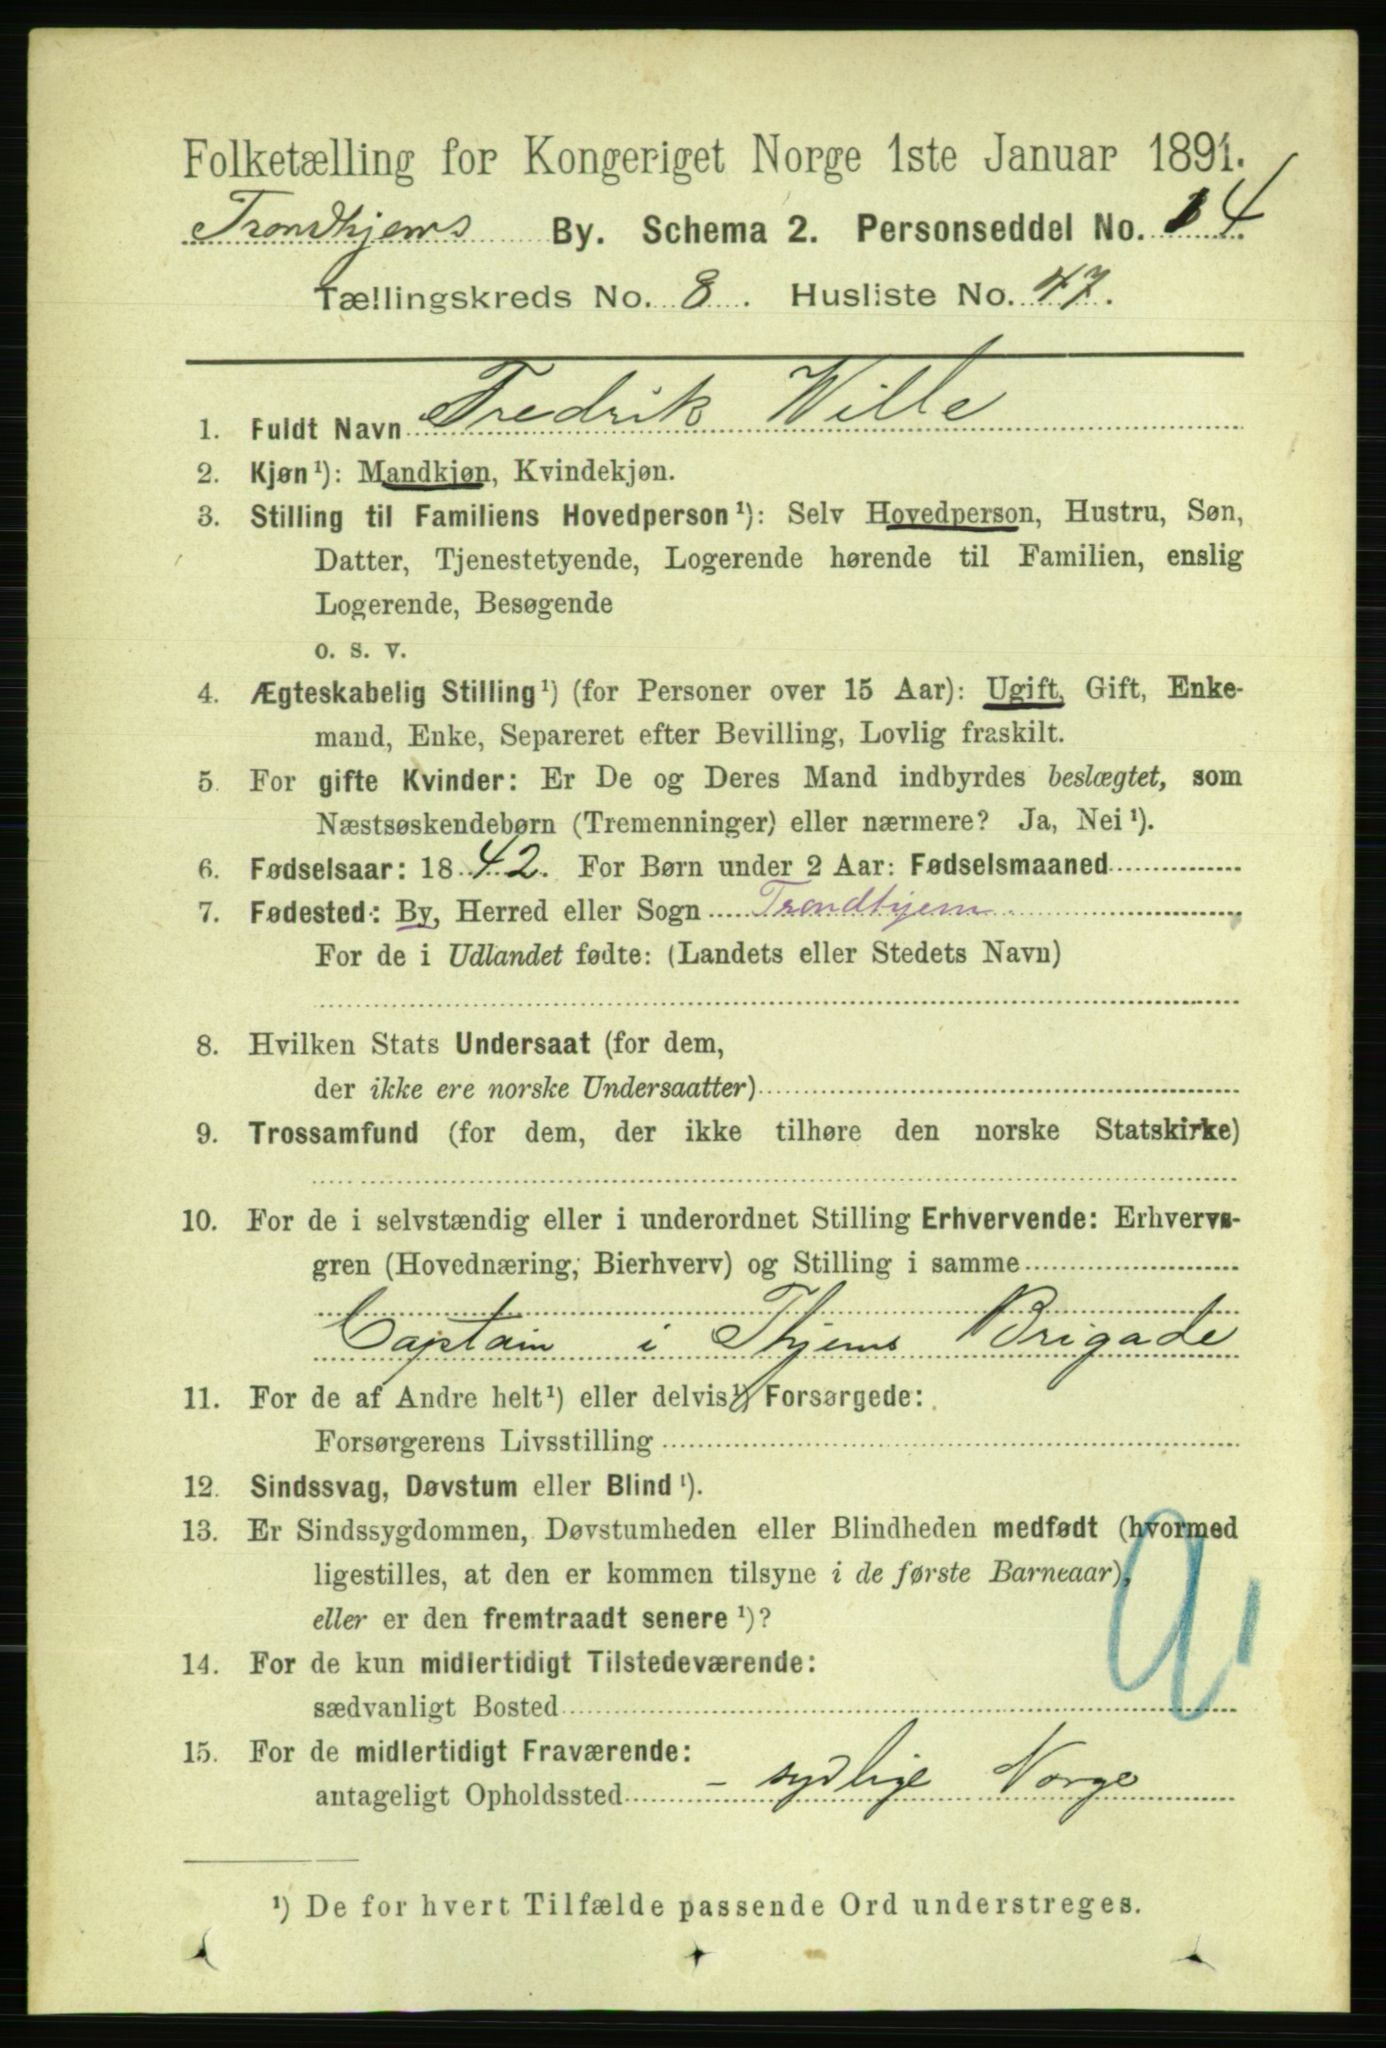 Folketælling for Kongeriget Norge 1ste Januar 1891.
Trondhjems By. Schema 2. Personseddel No. 14
Tællingskreds No. 8. Husliste No. 47.
1. Fuldt Navn Fredrik Wille
2. Kjøn¹): Mandkjøn, Kvindekjøn.
3. Stilling til Familiens Hovedperson¹): Selv Hovedperson, Hustru, Søn,
Datter, Tjenestetyende, Logerende hørende til Familien, enslig
Logerende, Besøgende
o. s. v.
4. Ægteskabelig Stilling¹) (for Personer over 15 Aar): Ugift, Gift, Enke-
mand, Enke, Separeret efter Bevilling, Lovlig fraskilt.
5. For gifte Kvinder: Er De og Deres Mand indbyrdes beslægtet, som
Næstsøskendebørn (Tremenninger) eller nærmere? Ja, Nei¹).
6. Fødselsaar: 1842. For Børn under 2 Aar: Fødselsmaaned
7. Fødested: By, Herred eller Sogn Trondhjem
For de i Udlandet fødte: (Landets eller Stedets Navn)
8. Hvilken Stats Undersaat (for dem,
der ikke ere norske Undersaatter)
9. Trossamfund (for dem, der ikke tilhøre den norske Statskirke)
10. For de i selvstændig eller i underordnet Stilling Erhvervende: Erhvervs-
gren (Hovednæring, Bierhverv) og Stilling i samme
Captain i Thjems Brigade
11. For de af Andre helt¹) eller delvis¹) Forsørgede:
Forsørgerens Livsstilling
12. Sindssvag, Døvstum eller Blind¹).
13. Er Sindssygdommen, Døvstumheden eller Blindheden medfødt (hvormed
ligestilles, at den er kommen tilsyne i de første Barneaar),
eller er den fremtraadt senere¹)?
14. For de kun midlertidigt Tilstedeværende:
sædvanligt Bosted
15. For de midlertidigt Fraværende:
antageligt Opholdssted - sydlige Norge
¹) De for hvert Tilfælde passende Ord understreges.